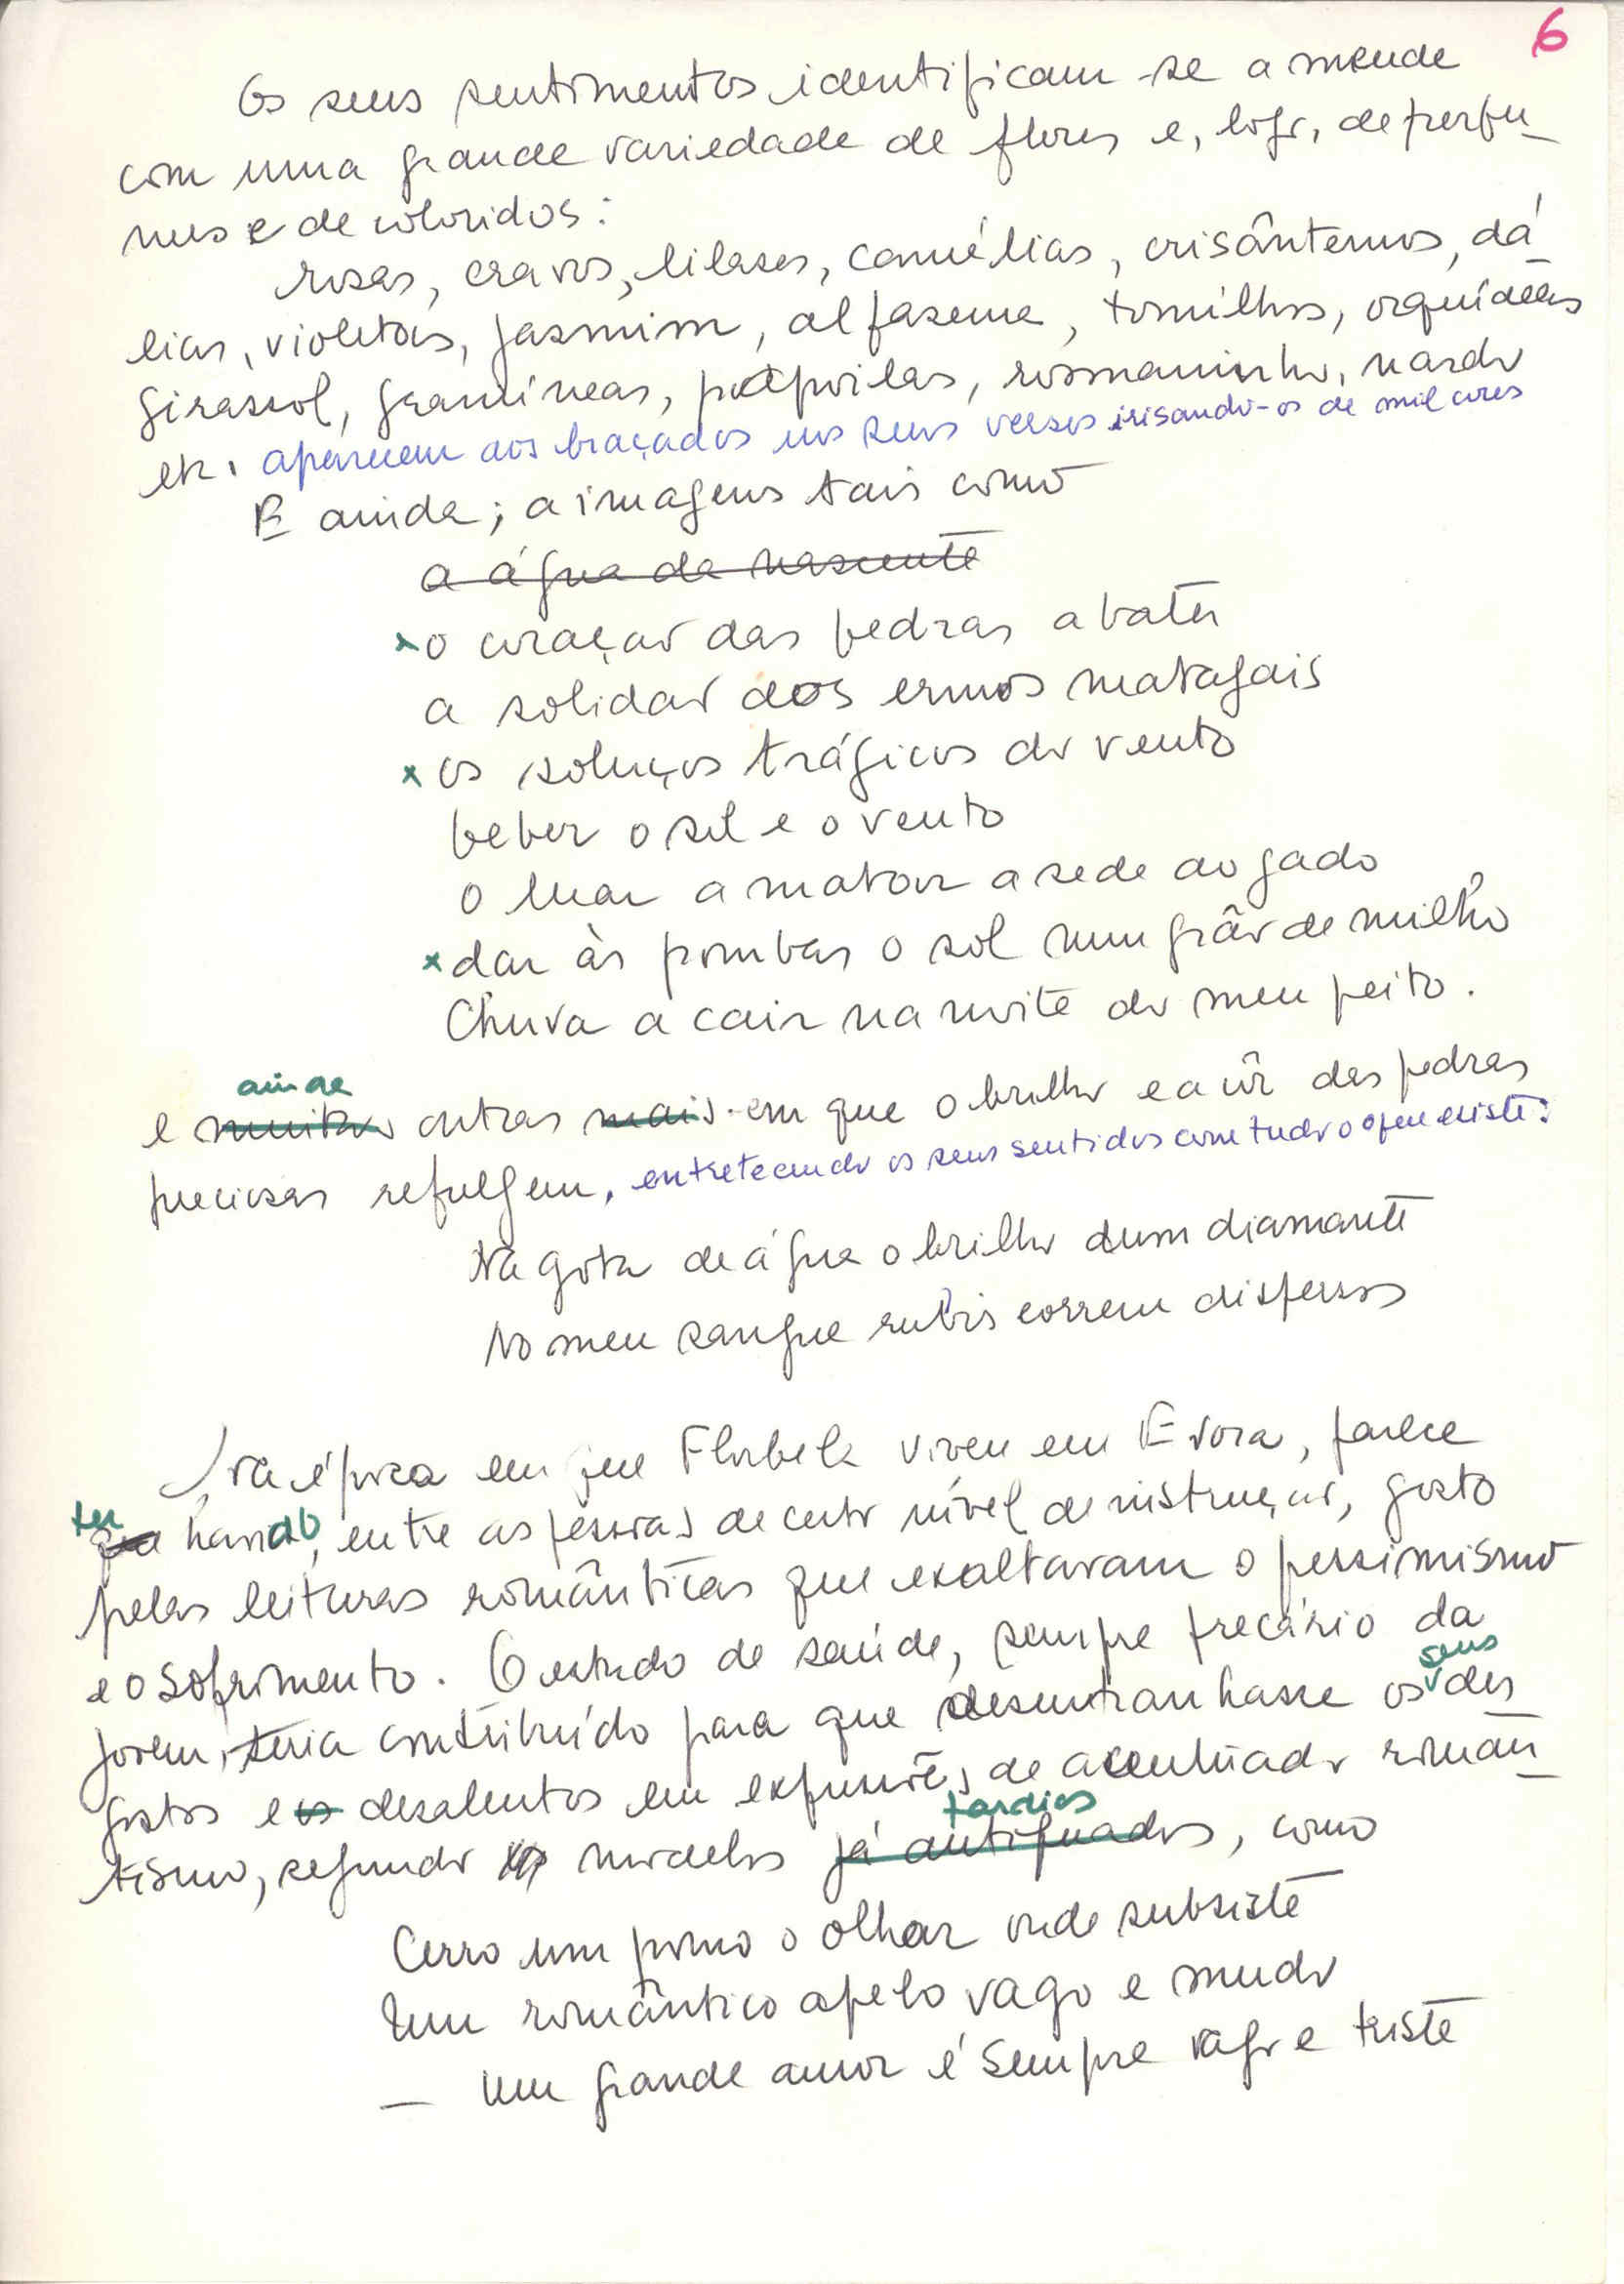 6
Os seus sentimentos identificam-se a meude
com uma grande variedade de flores e, logo, de perfu_
mes e de coloridos:
rosas, cravos, lilases, camélias, crisântemos, dá_
lias, violetas, jasmim, alfazema, tomilhos, orquídeas
girassol, gramíneas, papoilas, rosmaninho, nardo
etc. aparecem aos braçados nos seus versos irisando-os de mil cores
E ainda; a imagens tais como
a água da nascente
x o coração das pedras a bater
a solidão dos ermos matagais
x os soluços trágicos do vento
beber o sol e o vento
o luar a matar a sede ao gado
x dar às pombas o sol num grão de milho
Chuva a cair na noite do meu peito.
ainda
e muitas outras mais em que o brilho e a côr das pedras
preciosas refulgem, entretecendo os seus sentidos com tudo o que existe:
Na gota de água o brilho dum diamante
No meu sangue rubis correm dispersos
Na época em que Florbela viveu em Évora, parece
ter
que havido, entre as pessoas de certo nível de instrução, gosto
pelas leituras românticas que exaltavam o pessimismo
e o sofrimento. O estado de saúde, sempre precário da
seus
jovem, teria contribuído para que desentranhasse os des
gostos e os desalentos em expressões de acentuado roman_
tardios
tismo, segundo modelos já antiquados, como
Cerro um pouco o olhar onde subsiste
Um romântico apelo vago e mudo
— Um grande amor é sempre vago e triste